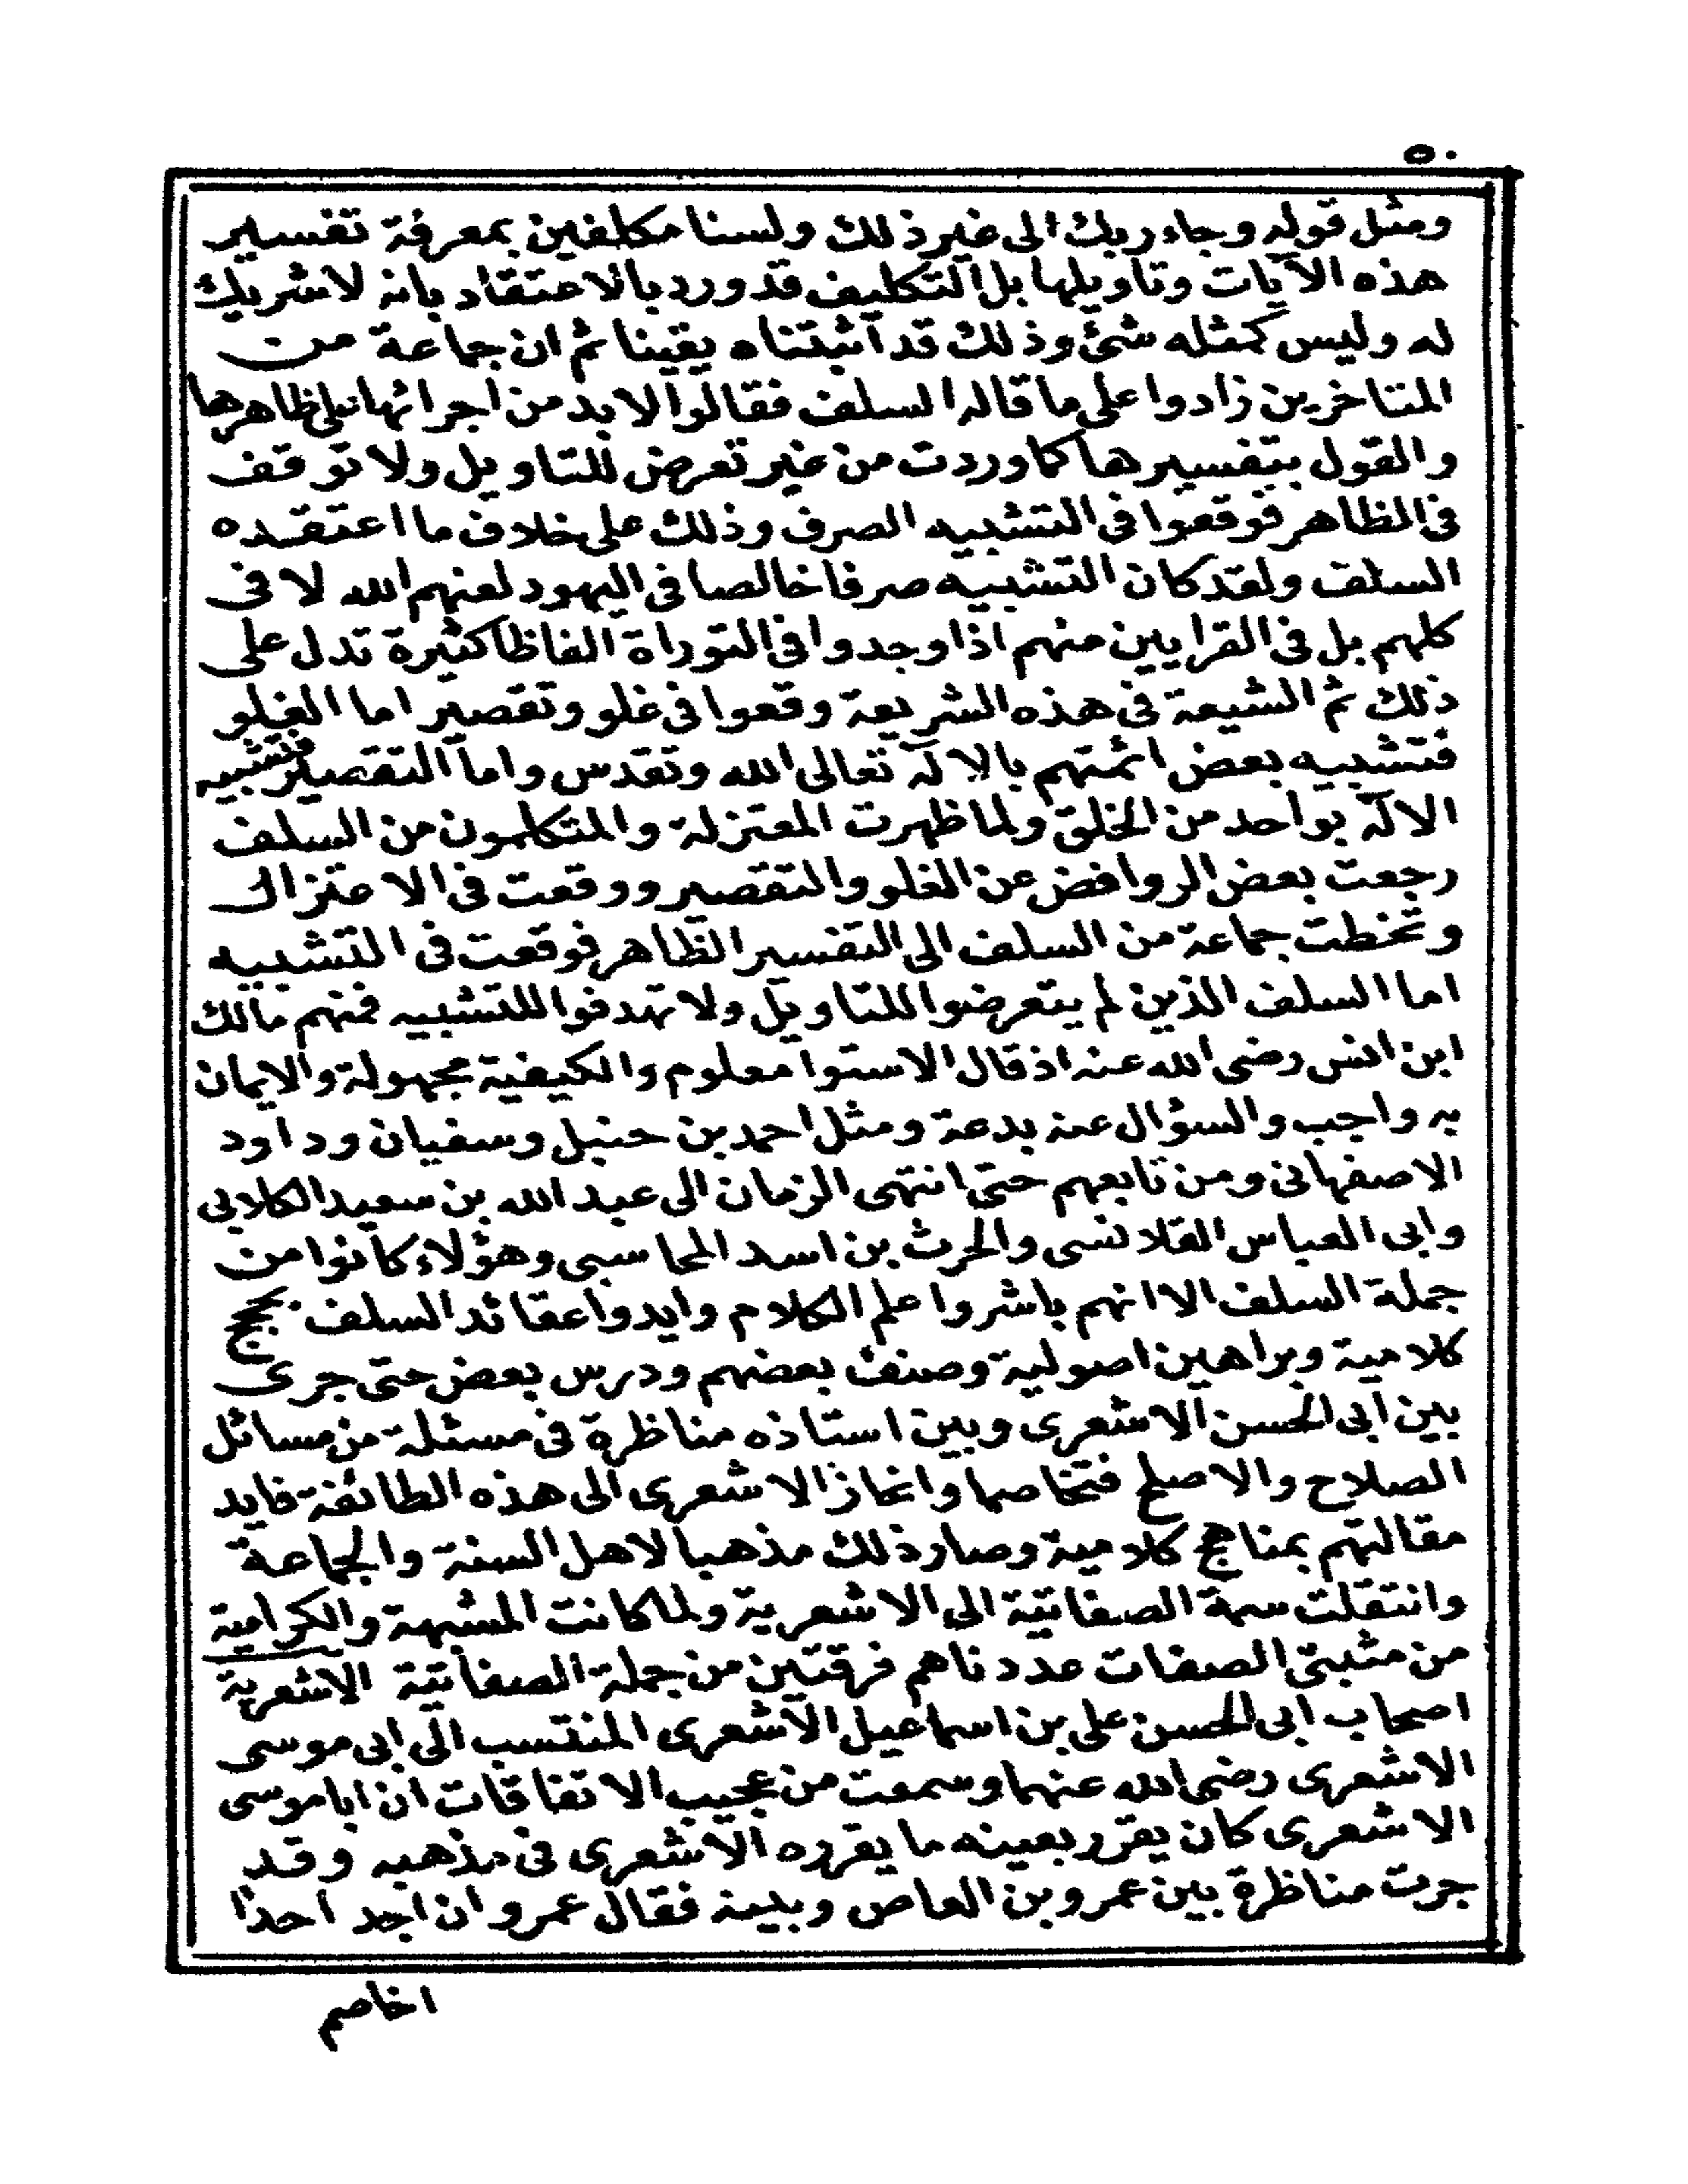 ٥٠
ومثل قوله وجاء ربك الى غير ذلك ولسنا مكلفين بمعرفة تفسير
هذه الآيات وتاويلها بل التكليف قد ورد بالاعتقاد بانه لا شريك
له وليس كمثله شئ وذلك قد اثبتناه يقينا ثم ان جماعة من
المتاخرين زادوا على ما قاله السلف فقالوا لابد من اجرائها على ظاهرها
والقول بتفسيرها كما وردت من غير تعرض للتاويل ولا توقف
فى الظاهر فوقعوا فى التشبيه الصرف وذلك على خلاف ما اعتقده
السلف ولقد كان التشبيه صرفا خالصا فى اليهود لعنهم الله لا فى
كلهم بل فى القرايين منهم اذا وجدوا فى التوراة الفاظا كثيرة تدل على
ذلك ثم الشيعة فى هذه الشريعة وقعوا فى غلو وتقصير اما الغلو
فتشبيه بعض ائمتهم بالاله تعالى الله وتقدس واما التقصير فتشبيه
الاله بواحد من الخلق ولما ظهرت المعتزلة والمتكلمون من السلف
رجعت بعض الروافض عن الغلو والتقصير ووقعت فى الاعتزال
وتخطت جماعة من السلف الى التفسير الظاهر فوقعت فى التشبيه
اما السلف الذين لم يتعرضوا للتاويل ولا تهدفوا للتشبيه فمنهم مالك
ابن انس رضى الله عنه اذ قال الاستوا معلوم والكيفية مجهولة والايمان
به واجب والسؤال عنه بدعة ومثل احمد بن حنبل وسفيان وداود
الاصفهانى ومن تابعهم حتى انتهى الزمان الى عبد الله بن سعيد الكلابى
وابى العباس القلانسى والحرث بن اسد المحاسبى وهؤلاء كانوا من
جملة السلف الا انهم باشروا علم الكلام وايدوا عقائد السلف بحجج
كلامية وبراهين اصولية وصنف بعضهم ودرس بعض حتى جرى
بين ابى الحسن الاشعرى وبين استاذه مناظرة فى مسئلة من مسائل
الصلاح والاصلح فتخاصما وانحاز الاشعرى الى هذه الطائفة فايد
مقالتهم بمناهج كلامية وصار ذلك مذهبا لاهل السنة والجماعة
وانتقلت سمة الصفاتية الى الاشعرية ولما كانت المشبهة والكرامية
من مثبتى الصفات عددناهم فرقتين من جملة الصفاتية الاشعرية
اصحاب ابى الحسن على بن اسماعيل الاشعرى المنتسب الى ابى موسى
الاشعرى رضى الله عنهما وسمعت من عجيب الاتفاقات ان ابا موسى
الاشعرى كان يقرر بعينه ما يقرره الاشعرى فى مذهبه وقد
جرت مناظرة بين عمرو بن العاص وبينه فقال عمرو ان اجد احدا
اخاصم